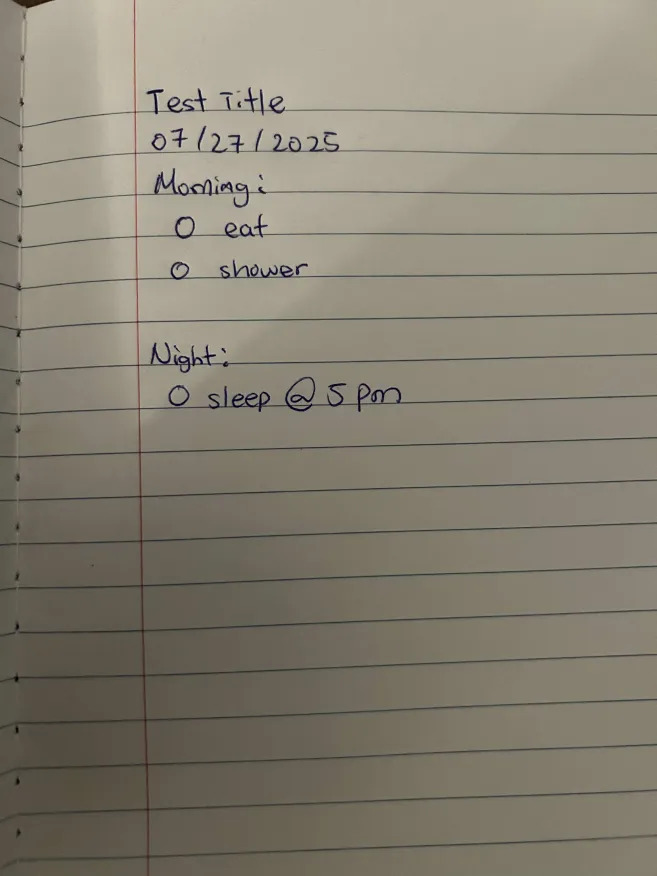 Test Title
07/27/2025
Morning:
O eat
O shower
Night:
O sleep @ 5 pm